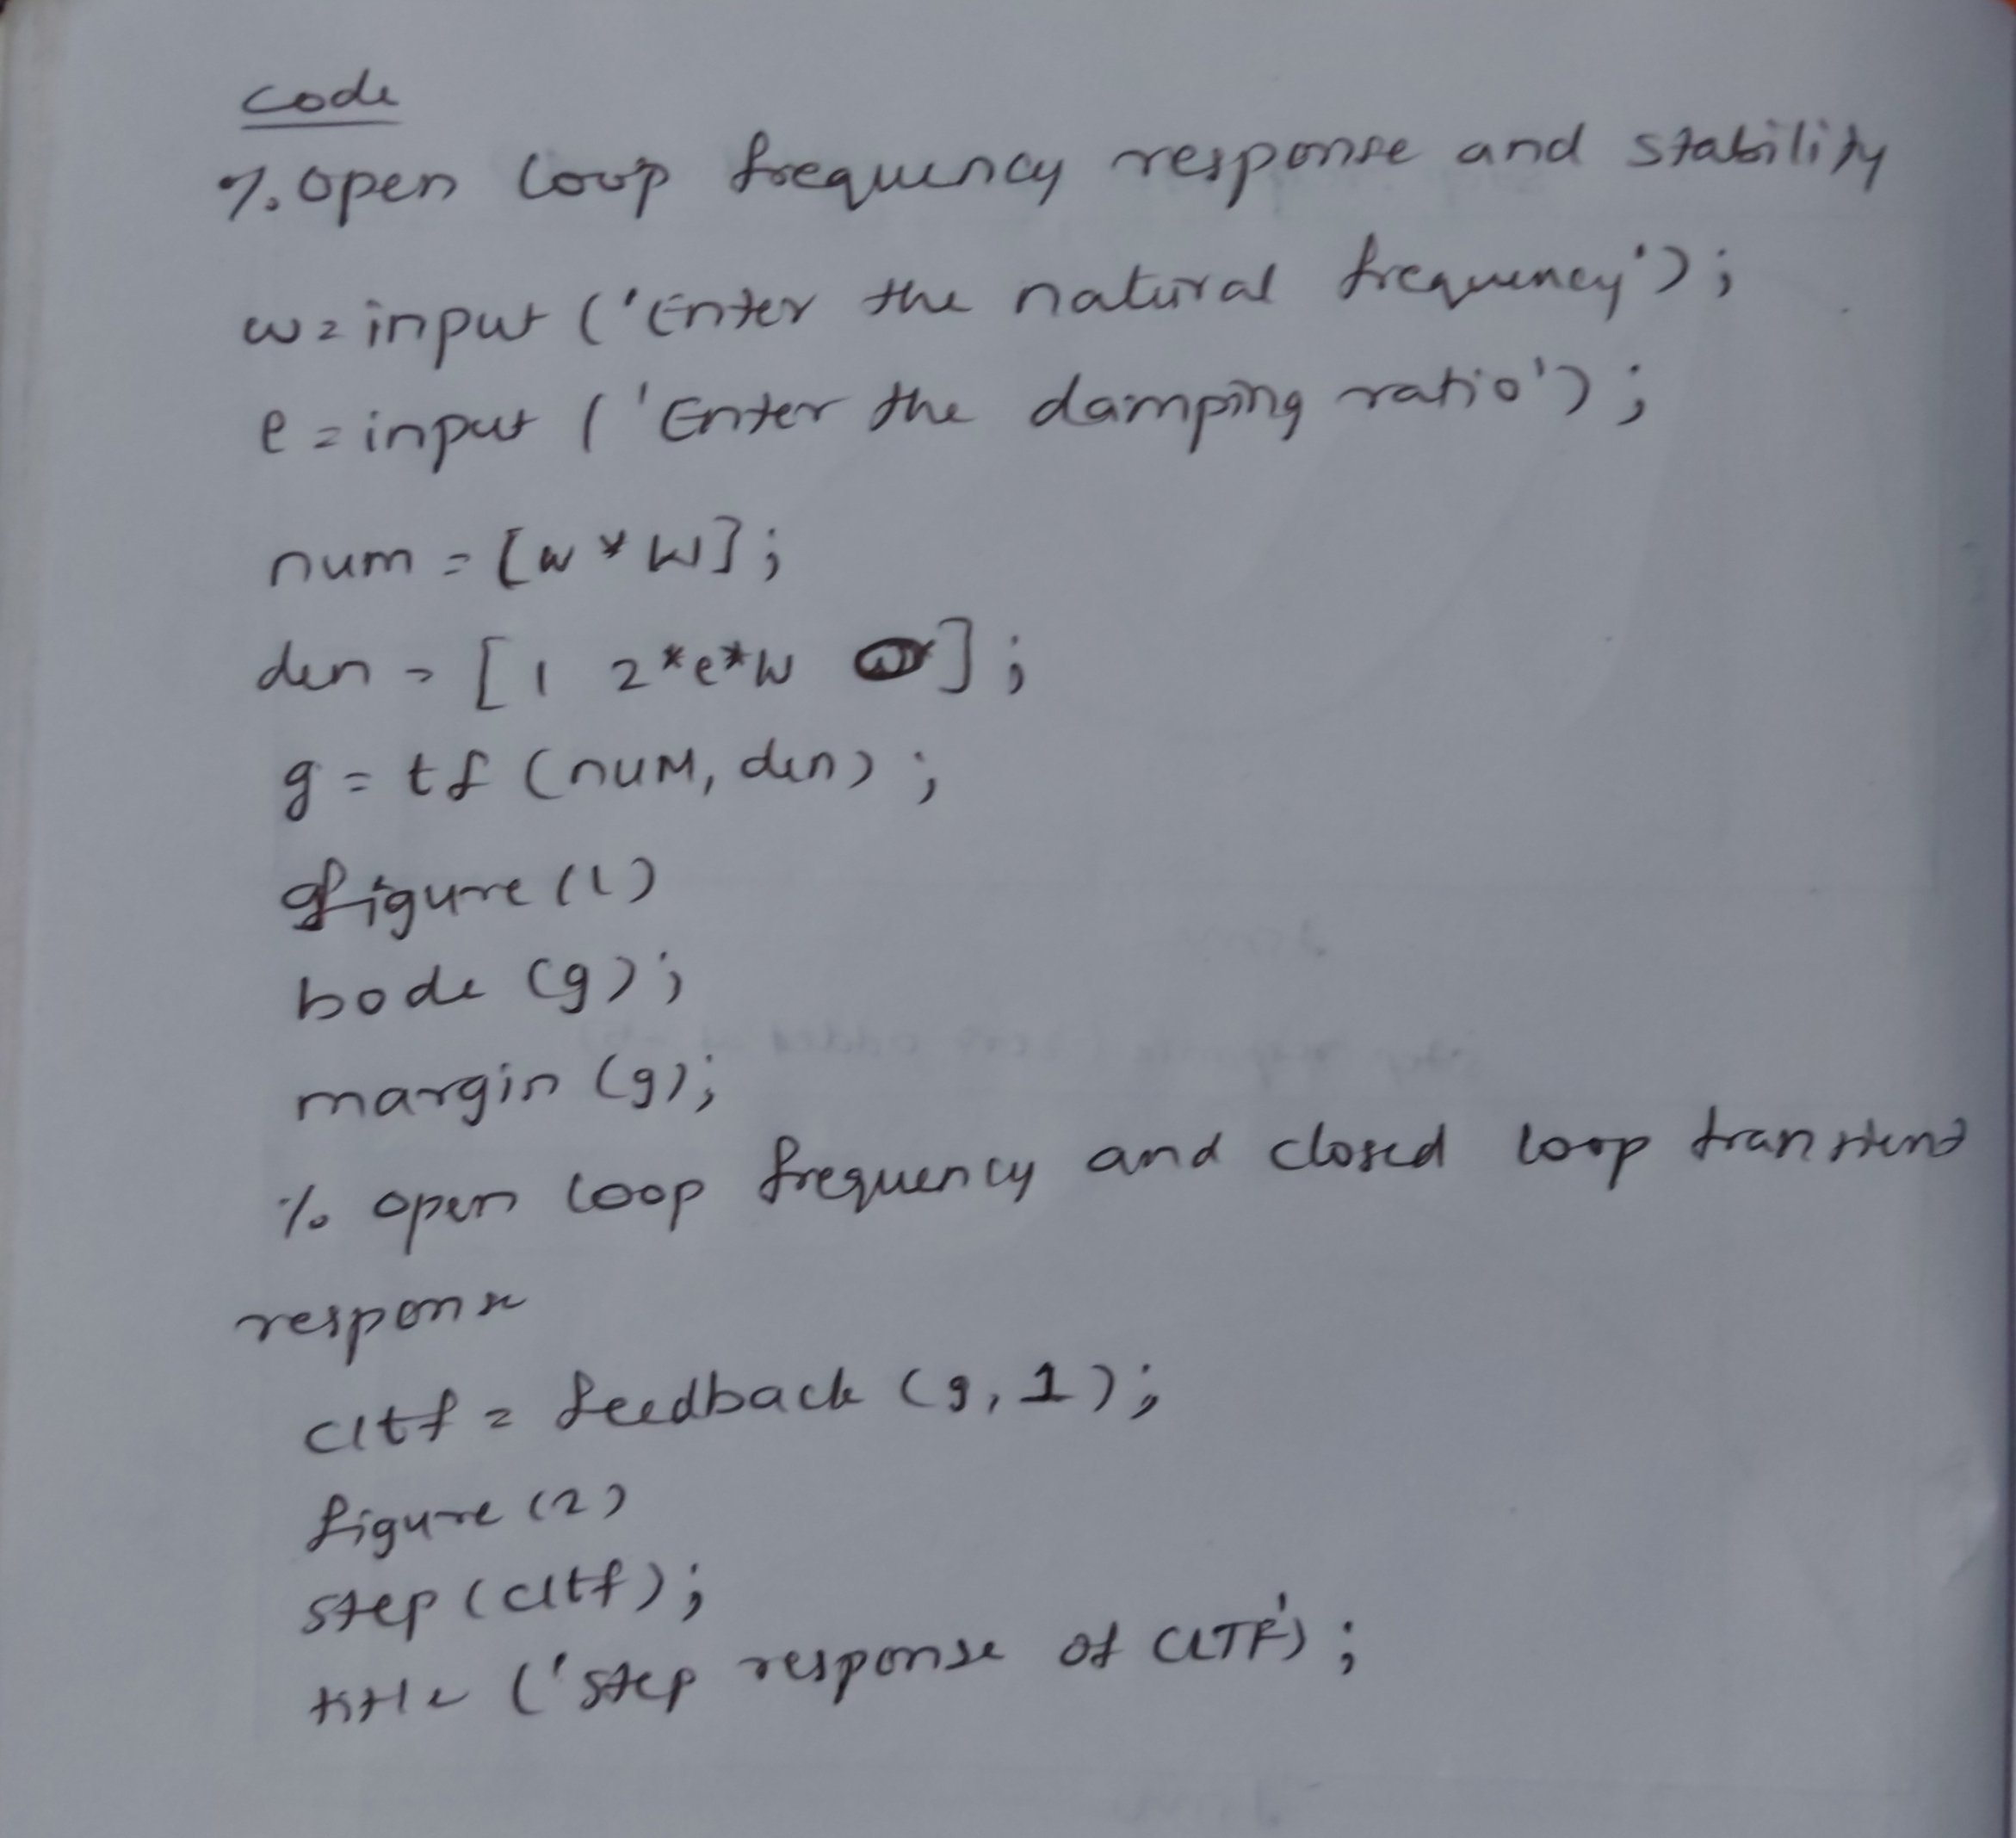 code
%. open loop frequency response and stability
w = input ('Enter the natural frequency');
e = input ('Enter the damping ratio');
num = [w * w];
den = [1 2*e*w ];
g = tf (num, den);
figure (1)
bode (g);
margin (g);
% open loop frequency and closed loop transient
response
cltf = feedback (g, 1);
figure (2)
step (cltf);
title ('step response of CLTF');